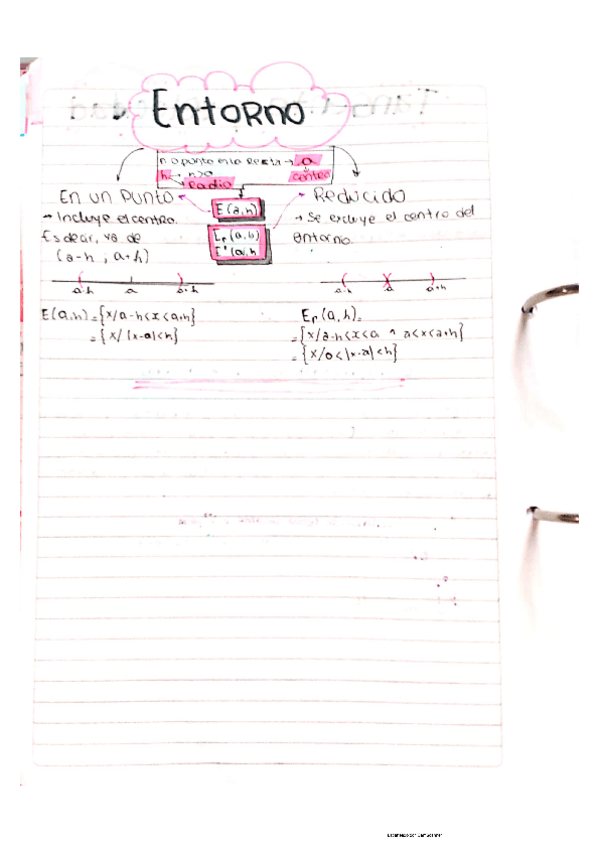 Entorno
n o punto en la Recta → a
h → h>0 centro
Radio
En un Punto
→ Incluye el centro.
Es decir, va de
(a-h ; a+h)
E(a,h)
Er(a,h)
E*(a,h
Reducido
→ Se excluye el centro del
entorno.
a-h a a+h
a-h a a+h
E(a,h)={x/a-h<x<a+h}
={x/ |x-a|<h}
Er(a,h)=
={x/a-h<x<a ^ a<x<a+h}
={x/0<|x-a|<h}